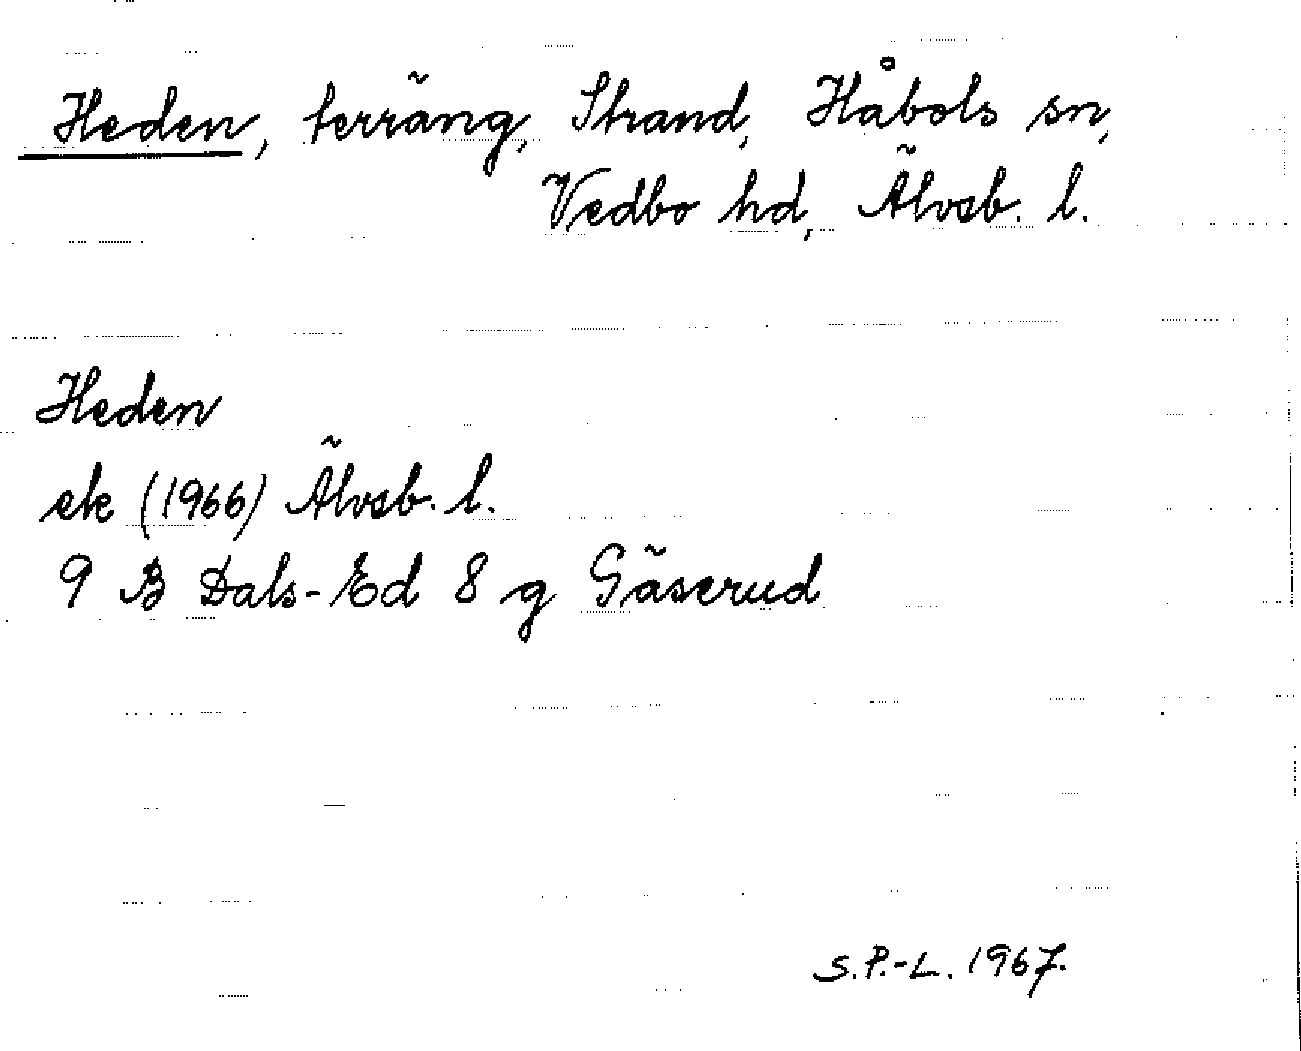 Heden, terräng, Strand, Håbols sn,
Vedbo hd, Älvsb. l.
Heden
ek (1966) Älvsb. l.
9 B Dals-Ed 8 g Gäserud
S.P.-L. 1967.